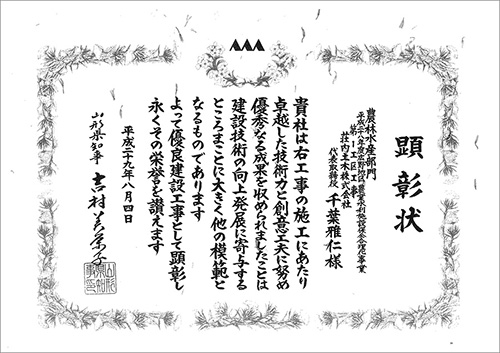 顕彰状
農林水産部門
第一工区工事
荘内土木株式会社
代表取締役 千葉雅仁 様
貴社は右工事の施工にあたり
卓越した技術力と創意工夫に努め
優秀なる成果を収められましたことは
建設技術の向上発展に寄与する
ところまことに大きく他の模範と
なるものであります
よって優良建設工事として顕彰し
永くその栄誉を讃えます
平成二十九年八月四日
山形県知事 吉村美栄子